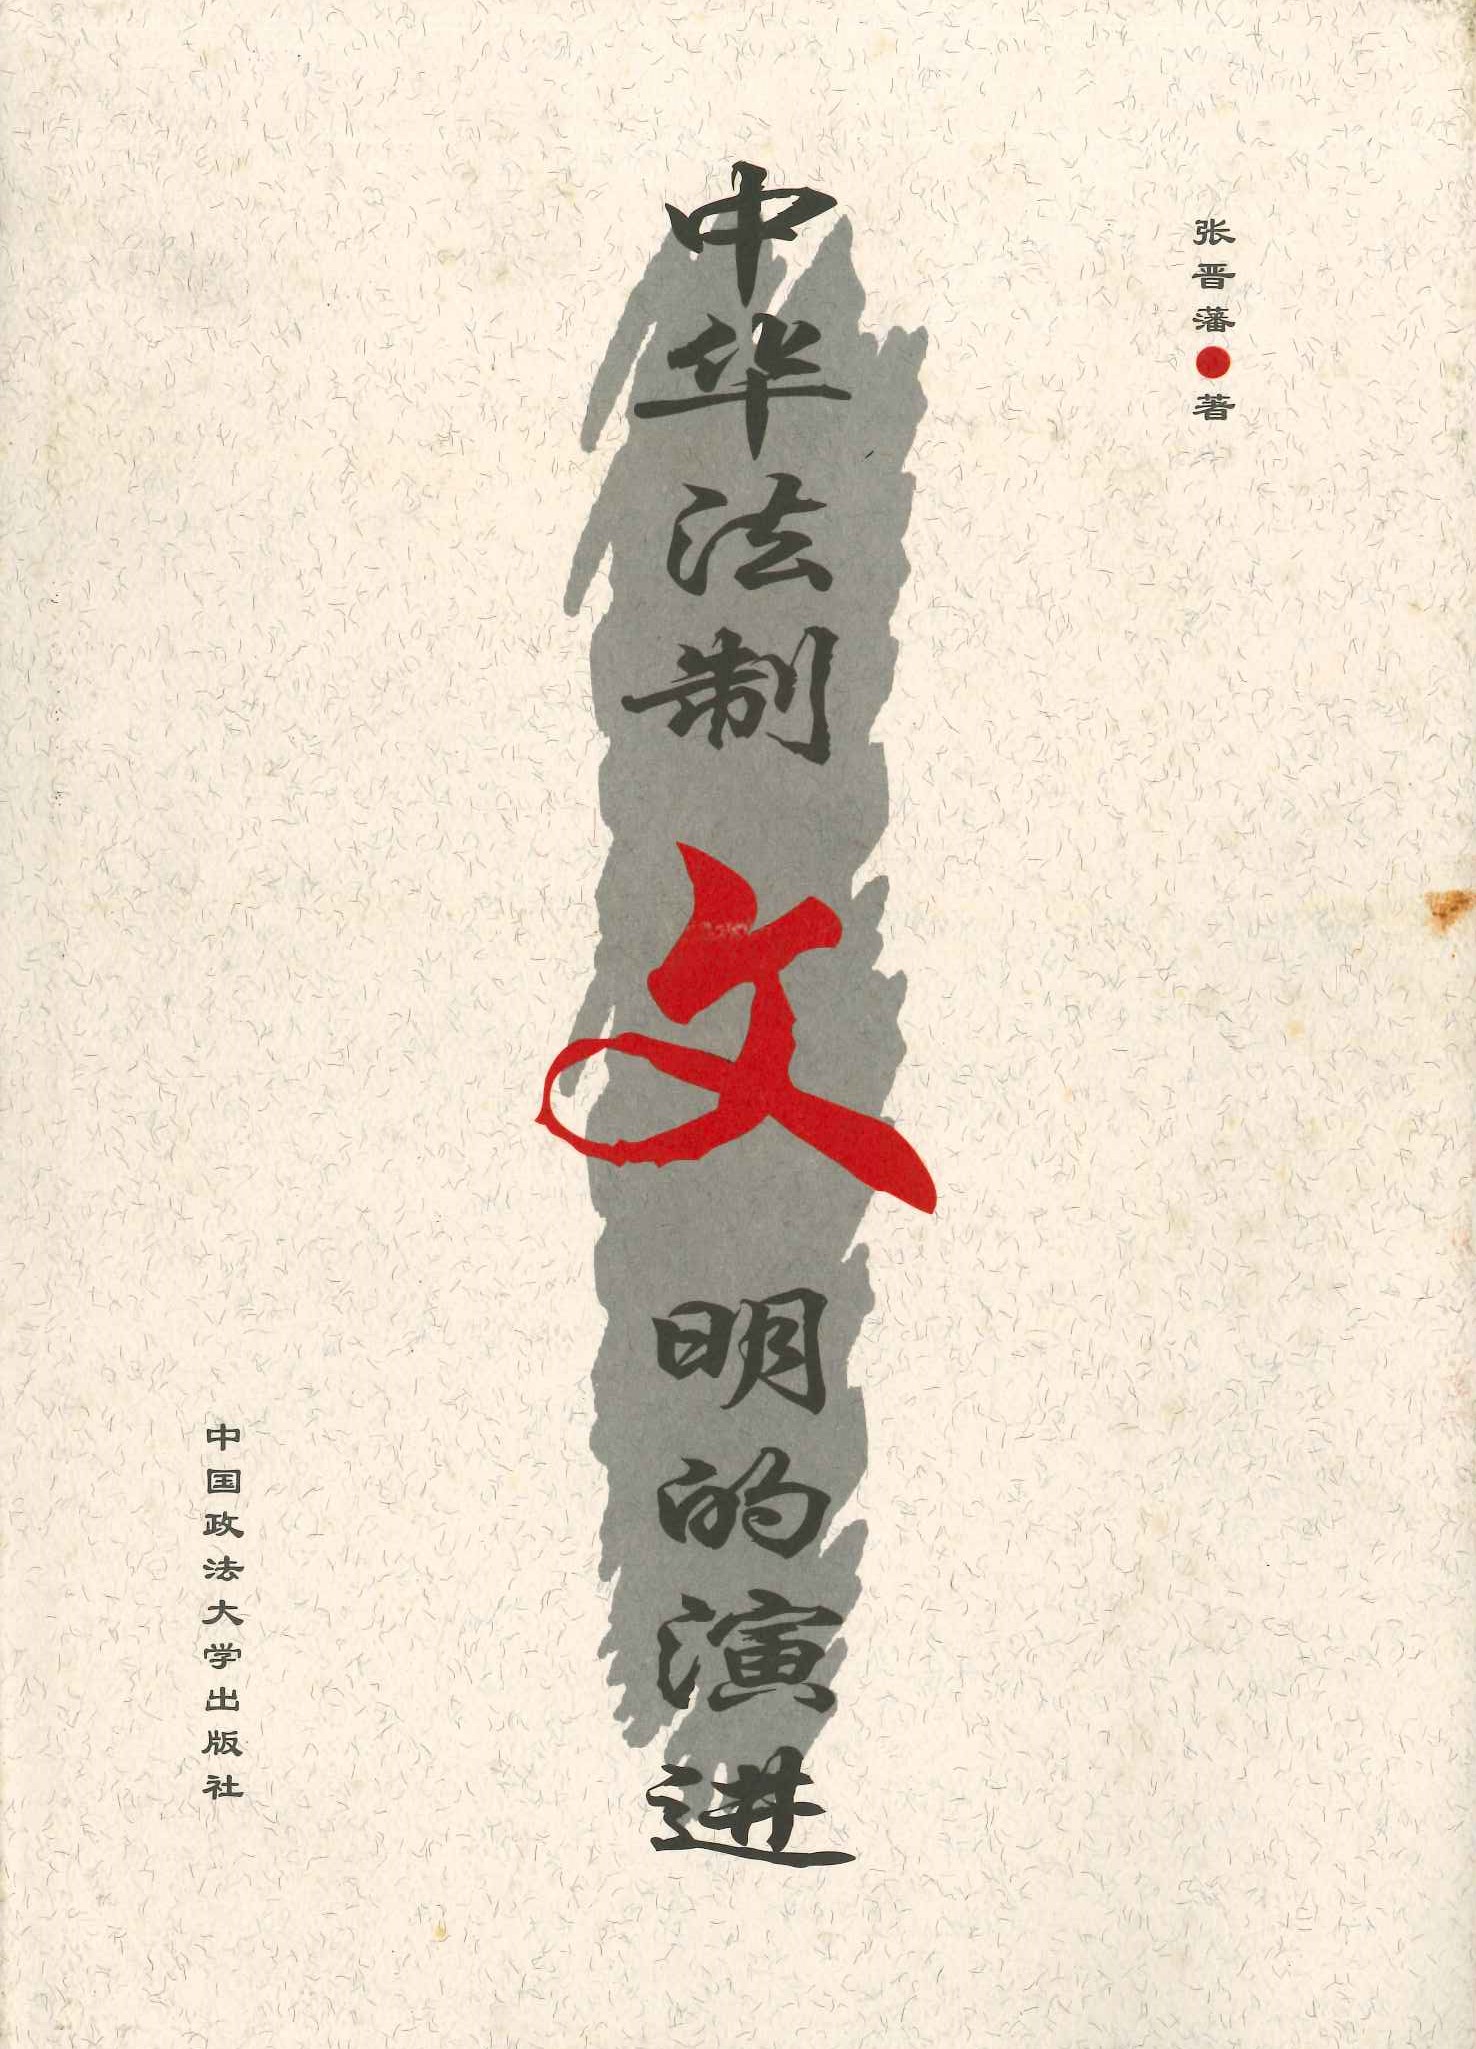 张晋藩●著
中华法制文明的演进
中国政法大学出版社